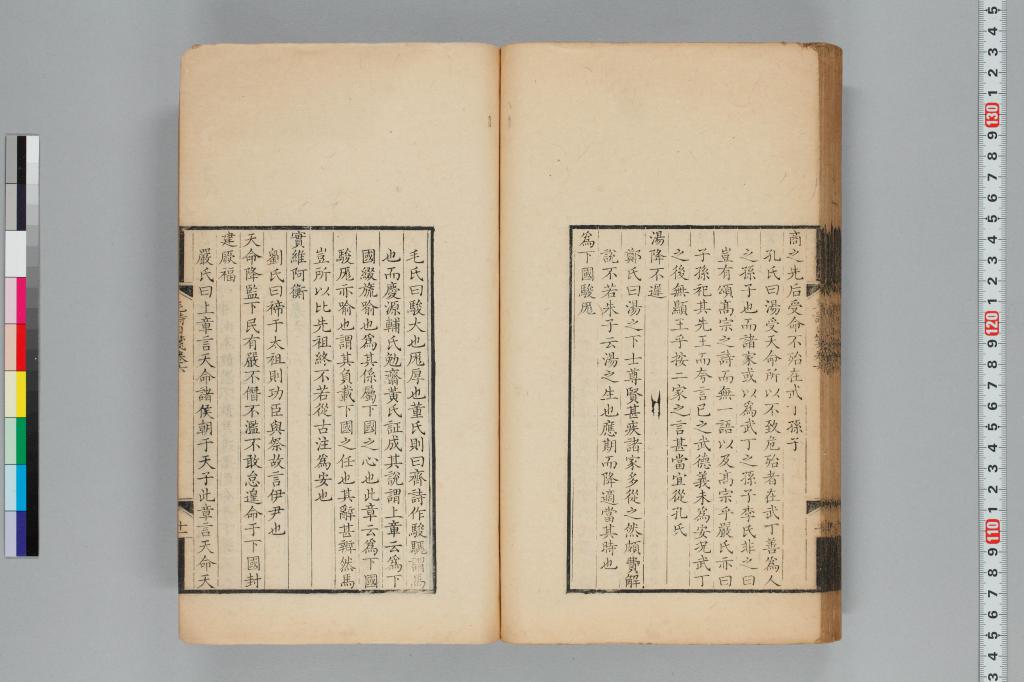 商之先后受命不殆在武丁孫子
孔氏曰湯受天命所以不致危殆者在武丁善為人
之孫子也而諸家或以為武丁之孫子李氏非之曰
豈有頌髙宗之詩而無一語以及髙宗乎嚴氏亦曰
子孫祀其先王而夸言已之武德義未為安况武丁
之後無顯王乎按二家之言甚當宜從孔氏
湯降不遲
鄭氏曰湯之下士尊賢甚疾諸家多從之然頗費解
説不若朱子云湯之生也應期而降適當其時也
為下國駿厖
毛氏曰駿大也厖厚也董氏則曰齊詩作駿駹謂馬
也而慶源輔氏勉齋黃氏証成其說謂上章云為下
國綴旒喻也為其係屬下國之心也此章云為下國
駿厖亦喻也謂其負載下國之任也其辭甚辨然馬
豈所以比先祖終不若從古注為安也
實維阿衡
劉氏曰禘于太祖則功臣與祭故言伊尹也
天命降監下民有嚴不僭不濫不敢怠遑命于下國封
建厥福
嚴氏曰上章言天命諸侯朝于天子此章言天命天
十一
130
120
110